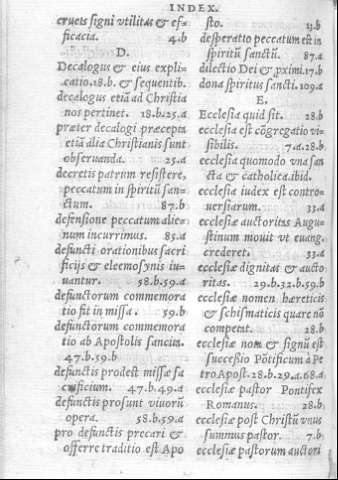 INDEX.
crucis signi vtilitas & ef-
ficacia. 4.b
D.
Decalogus & eius expli-
catio.18.b. & sequentib.
decalogus etiã ad Christia
nos pertinet. 18.b.25.a
præter decalogi præcepta
etiã alia Christianis sunt
obseruanda. 25.a
decretis patrum resistere,
peccatum in spiritũ san-
ctum. 87.b
defensione peccatum alie-
num incurrimus. 85.a
defuncti orationibus sacri
ficijs & eleemosynis iu-
uantur. 58.b.59.a
defunctorum commemora
tio fit in missa. 59.b
defunctorum commemora
tio ab Apostolis sancita.
47.b.59.b
defunctis prodest missæ sa
crificium. 47.b.49.a
defunctis prosunt viuorũ
opera. 58.b.59.a
pro defunctis precari &
offerre traditio est Apo
sto. 13.b
desperatio peccatum est in
spiritũ sanctũ. 87.a
dilectio Dei & pximi.17.b
dona spiritus sancti.109.a
E.
Ecclesia quid sit. 28.b
ecclesia est cõgregatio vi-
sibilis. 7.a.28.b
ecclesia quomodo vna san
cta & catholica.ibid.
ecclesia iudex est contro-
uersiarum. 33.a
ecclesiæ auctoritas Augu-
stinum mouit vt euang.
crederet. 33.a
ecclesiæ dignitas & aucto
ritas. 29.b.32.b.59.b
ecclesiæ nomen hæreticis
& schismaticis quare nõ
competit. 28.b
ecclesiæ nom & signũ est
successio Põtificum à Pe
tro Apost.28.b.29.a.68.a
ecclesiæ pastor Pontifex
Romanus. 28.b
ecclesiæ post Christũ vnus
summus pastor. 7.b
ecclesiæ pastorum auctori